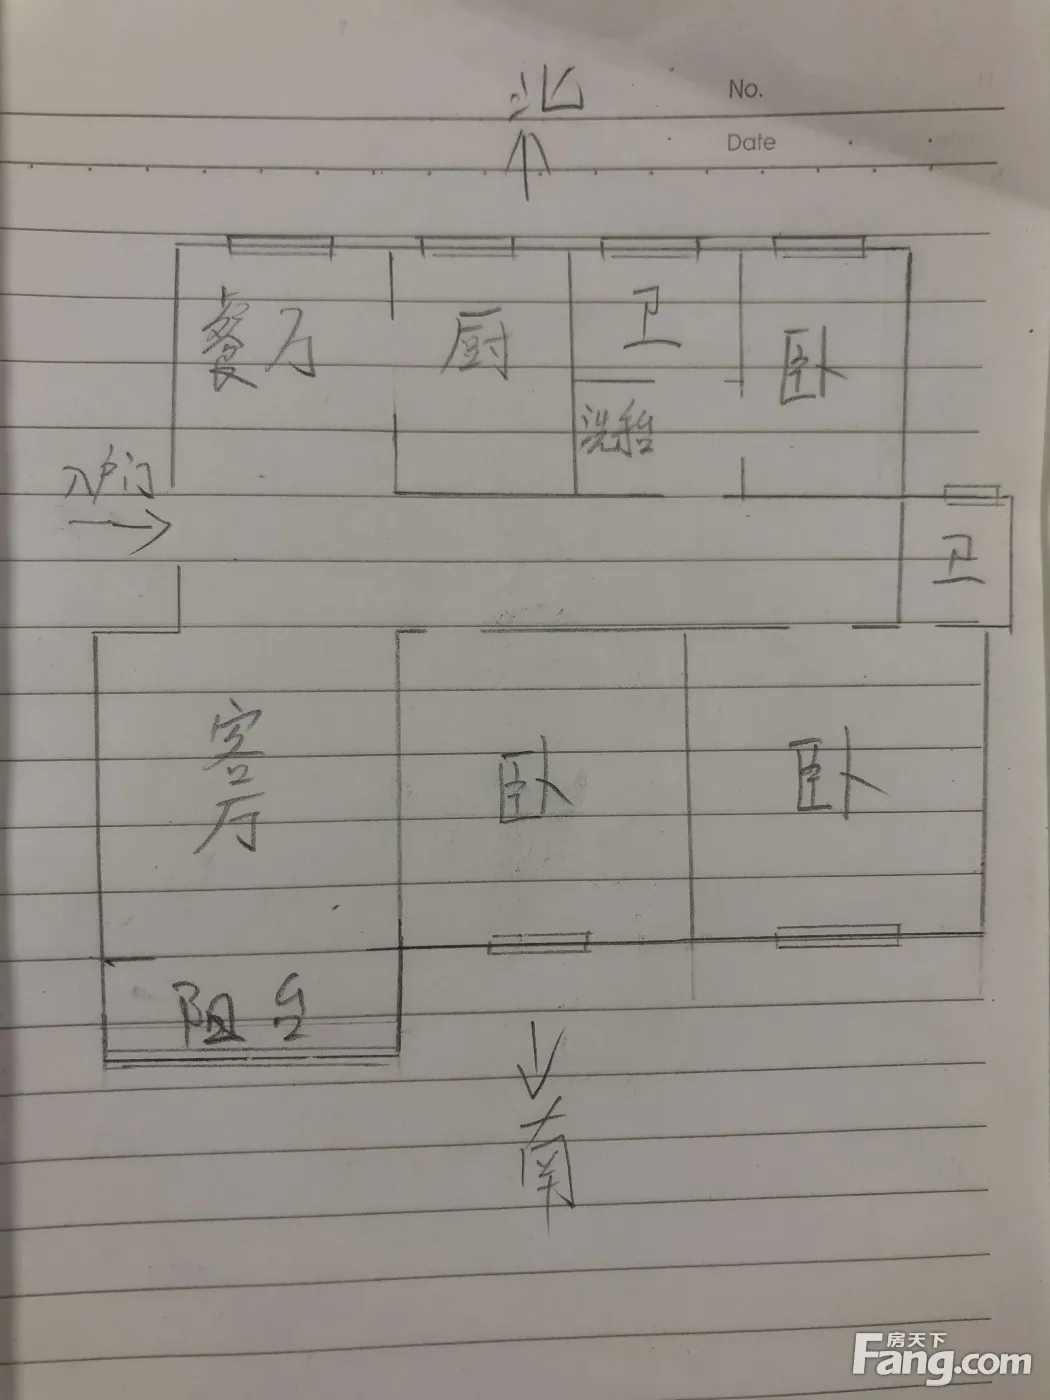 北
No.
Date
餐厅
厨
卫
卧
洗
入户门
卫
客厅
卧
卧
阳台
南
房天下
Fang.com